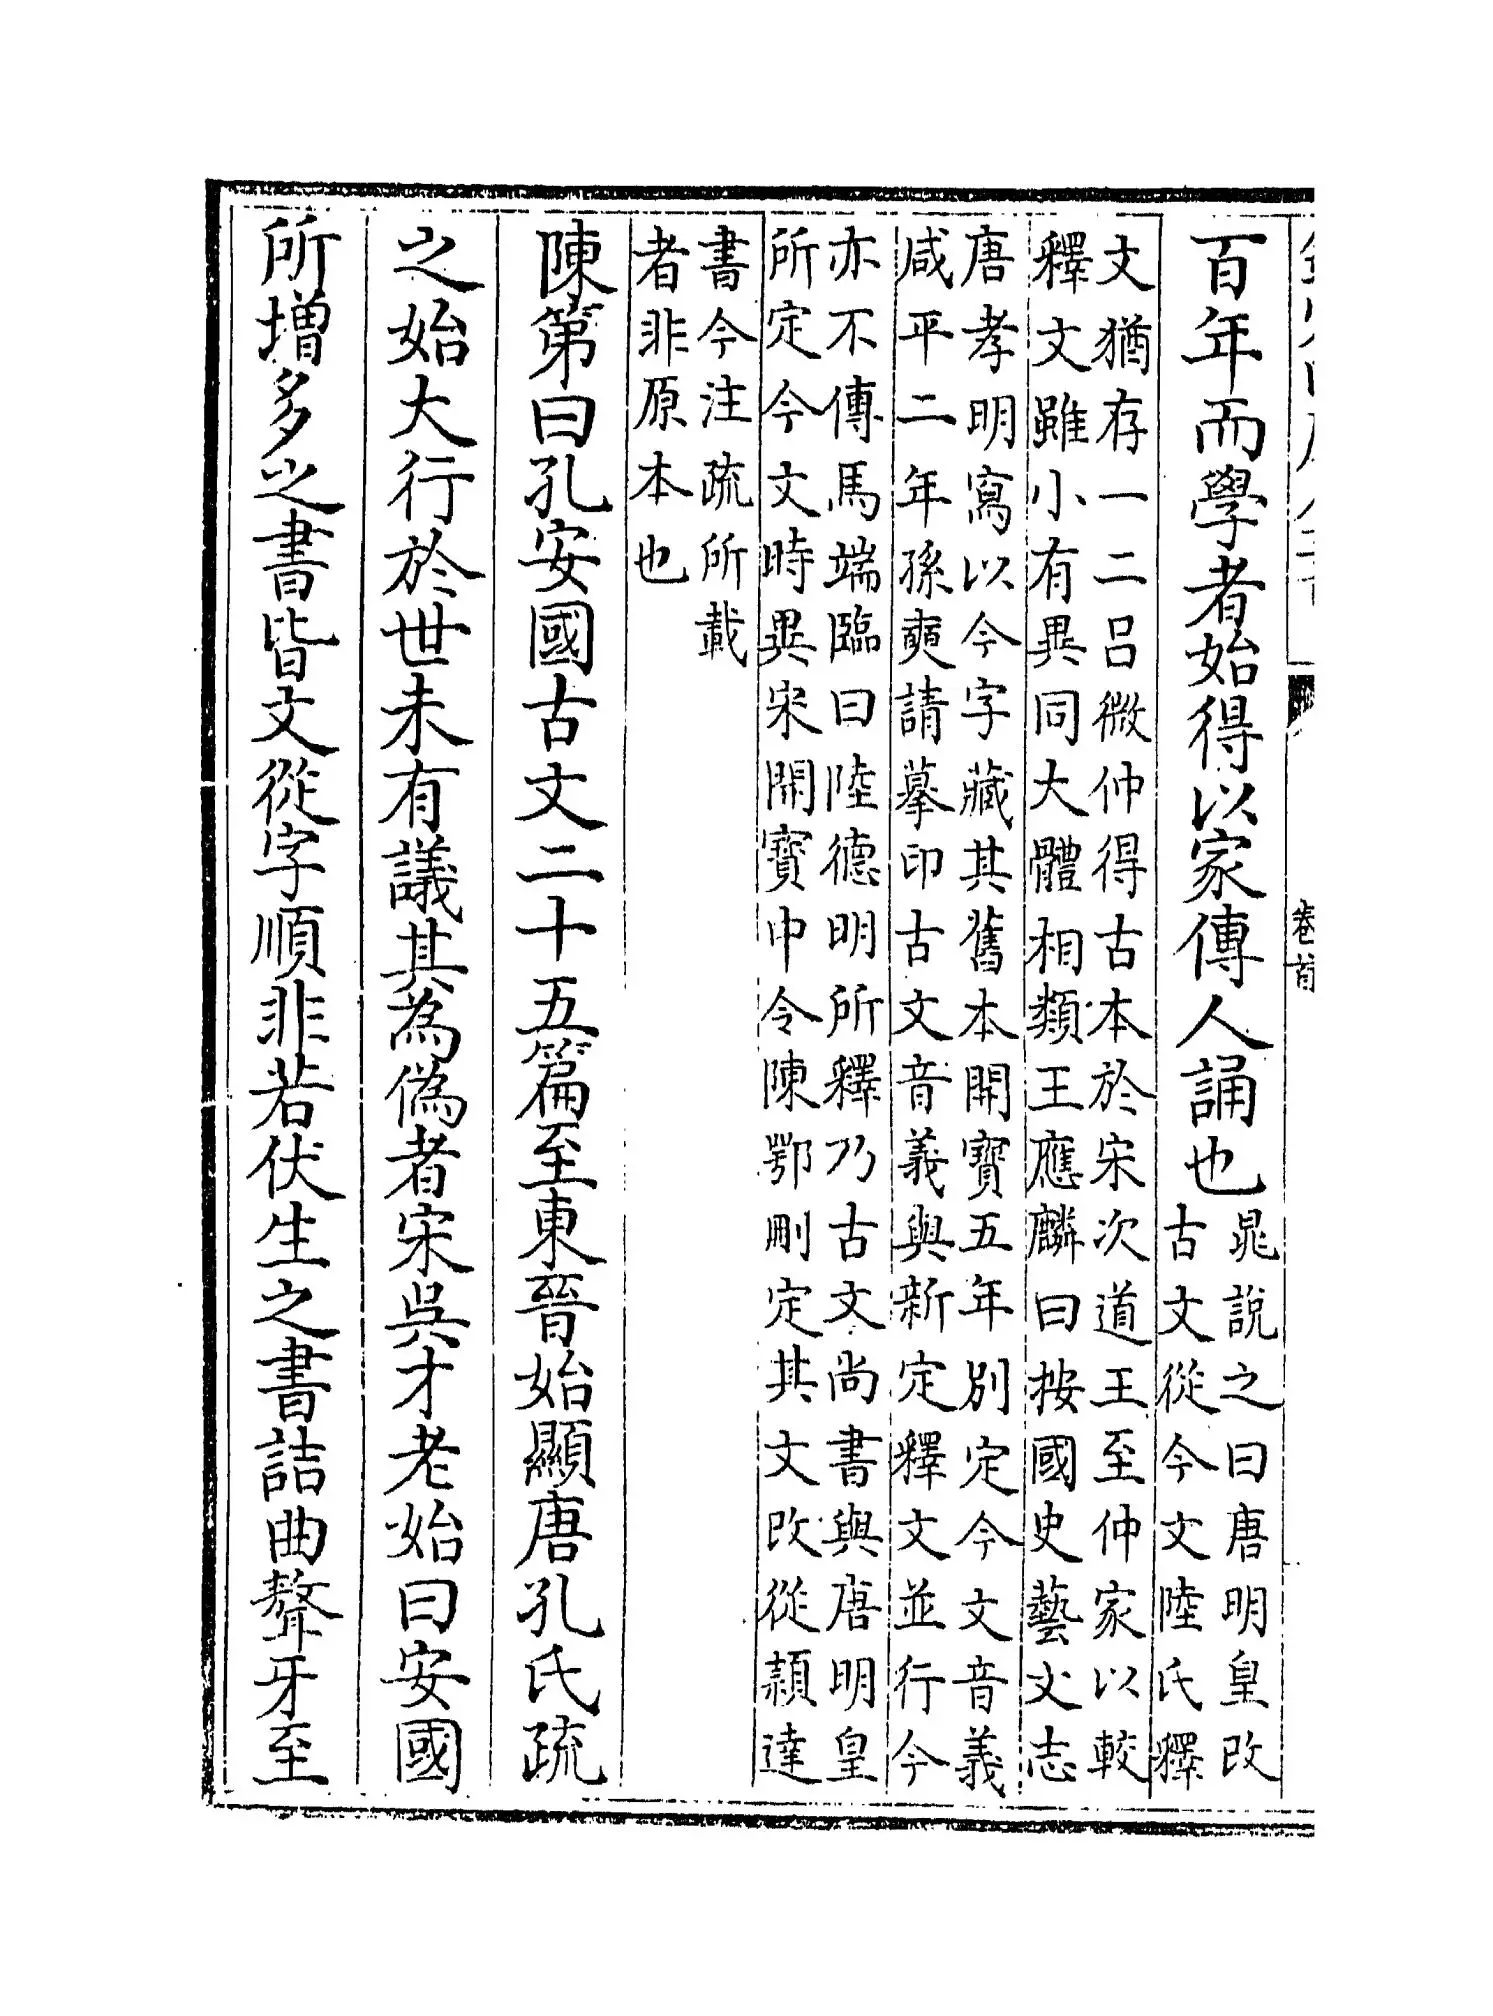 卷首
百年而學者始得以家傳人誦也
晁說之曰唐明皇改
古文從今文陸氏釋
文猶存一二呂微仲得古本於宋次道王至仲家以較
釋文雖小有異同大體相類王應麟曰按國史藝文志
唐孝明寫以今字藏其舊本開寶五年別定今文音義
咸平二年孫奭請摹印古文音義與新定釋文並行今
亦不傳馬端臨曰陸德明所釋乃古文尚書與唐明皇
所定今文時異宋開寶中令陳鄂刪定其文改從穎達
書今注疏所載
者非原本也
陳第曰孔安國古文二十五篇至東晉始顯唐孔氏疏
之始大行於世未有議其為偽者宋吳才老始曰安國
所增多之書皆文從字順非若伏生之書詰曲聱牙至